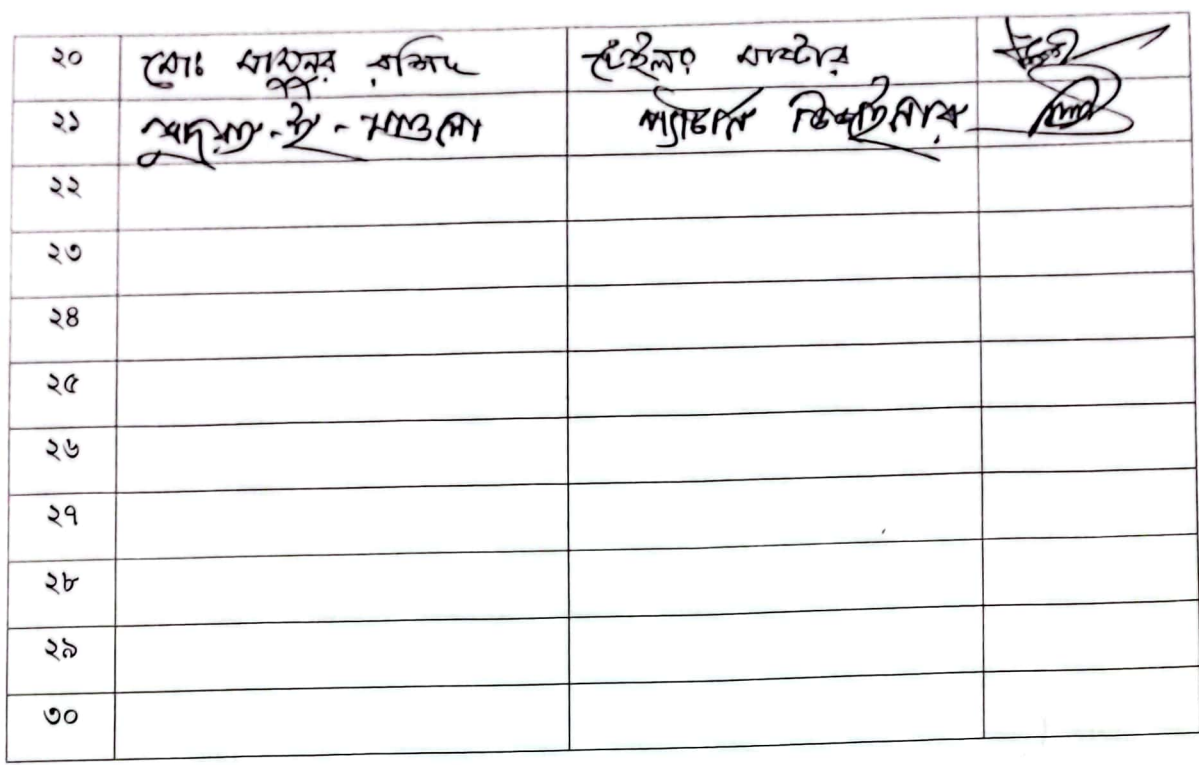 ২০ মোঃ মামুনুর রশিদ টেইলর মাষ্টার
২১ কুদরত-ই-মাওলা প্যাটার্ন ডিজাইনার
২২
২৩
২৪
২৫
২৬
২৭
২৮
২৯
৩০